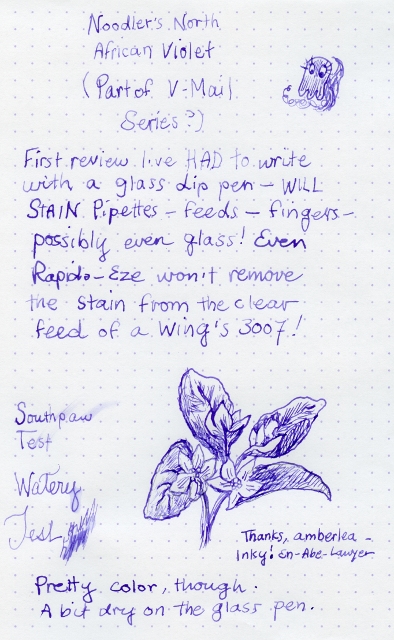 Noodler's North
African Violet
(Part of V-Mail
Series?)
First review I've HAD to write
with a glass dip pen - WILL
STAIN Pipettes - feeds - fingers -
possibly even glass! Even
Rapido-Eze won't remove
the stain from the clear
feed of a Wing's 3007!
Southpaw
Test
Watery
Test
Thanks, amberlea -
Inky! En-Abe-Lawyer
Pretty color, though.
A bit dry on the glass pen.